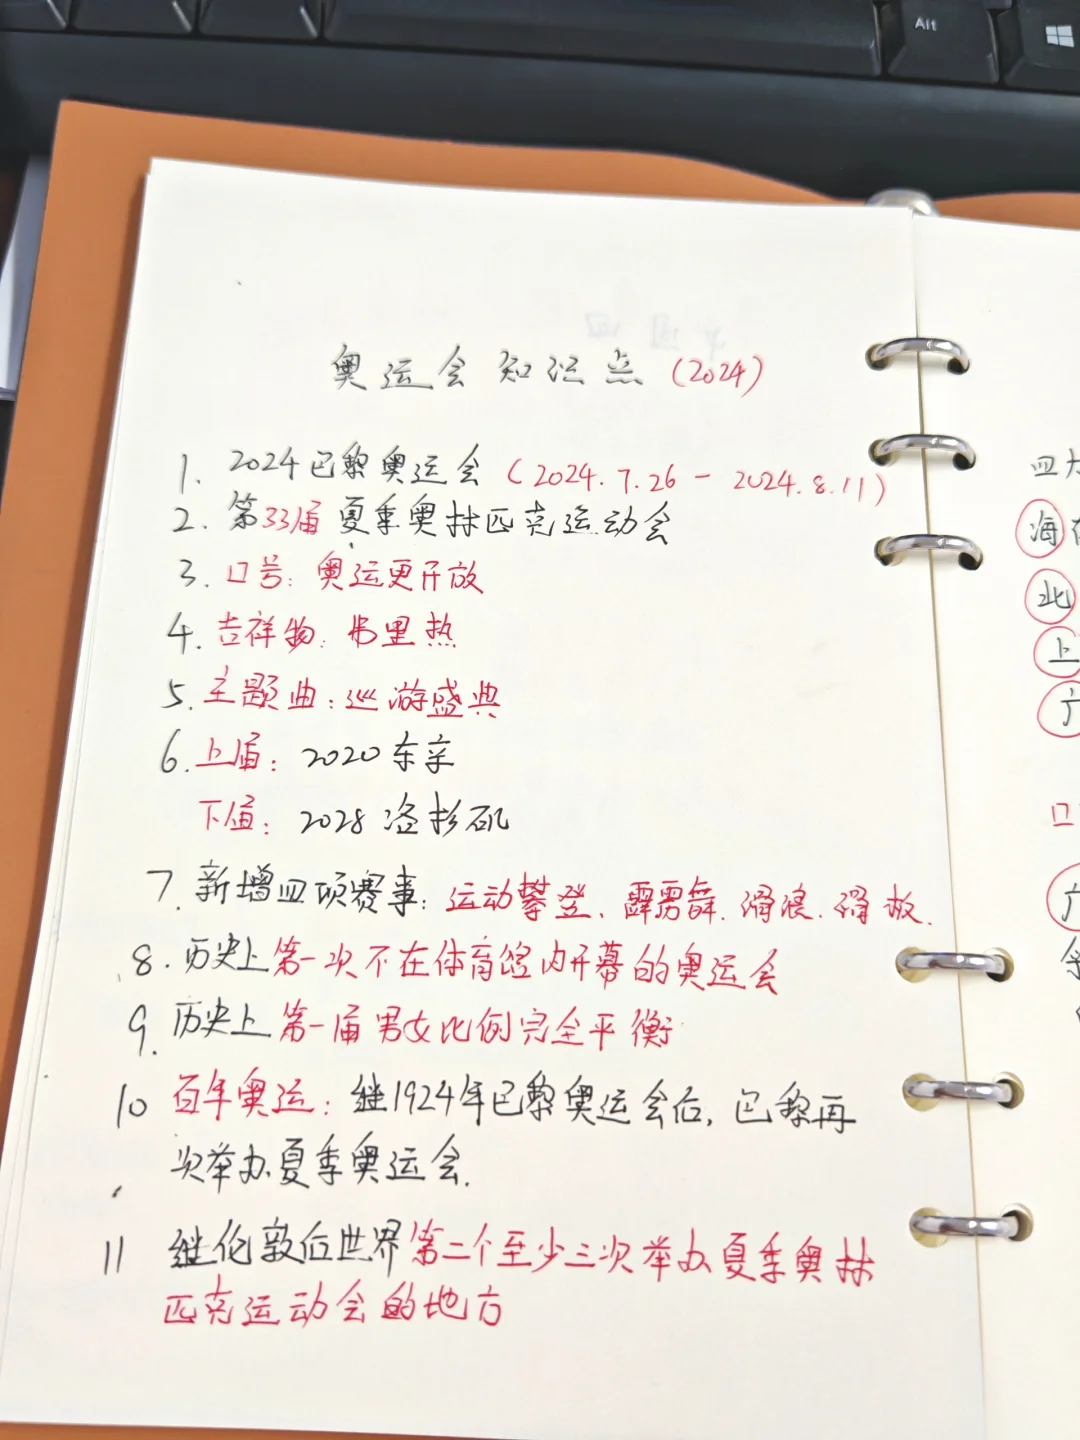 Alt
奥运会知识点(2024)
1. 2024巴黎奥运会(2024.7.26-2024.8.11)
2. 第33届夏季奥林匹克运动会
3. 口号:奥运更开放
4. 吉祥物:弗里热
5. 主题曲:巡游盛典
6. 上届:2020东京
下届:2028洛杉矶
7. 新增四项赛事:运动攀登、霹雳舞、滑浪、滑板.
8. 历史上第一次不在体育馆内开幕的奥运会
9. 历史上第一届男女比例完全平衡
10 百年奥运:继1924年巴黎奥运会后,巴黎再
次举办夏季奥运会.
11 继伦敦后世界第二个至少三次举办夏季奥林
匹克运动会的地方
四大
海
北
上
广
口
广